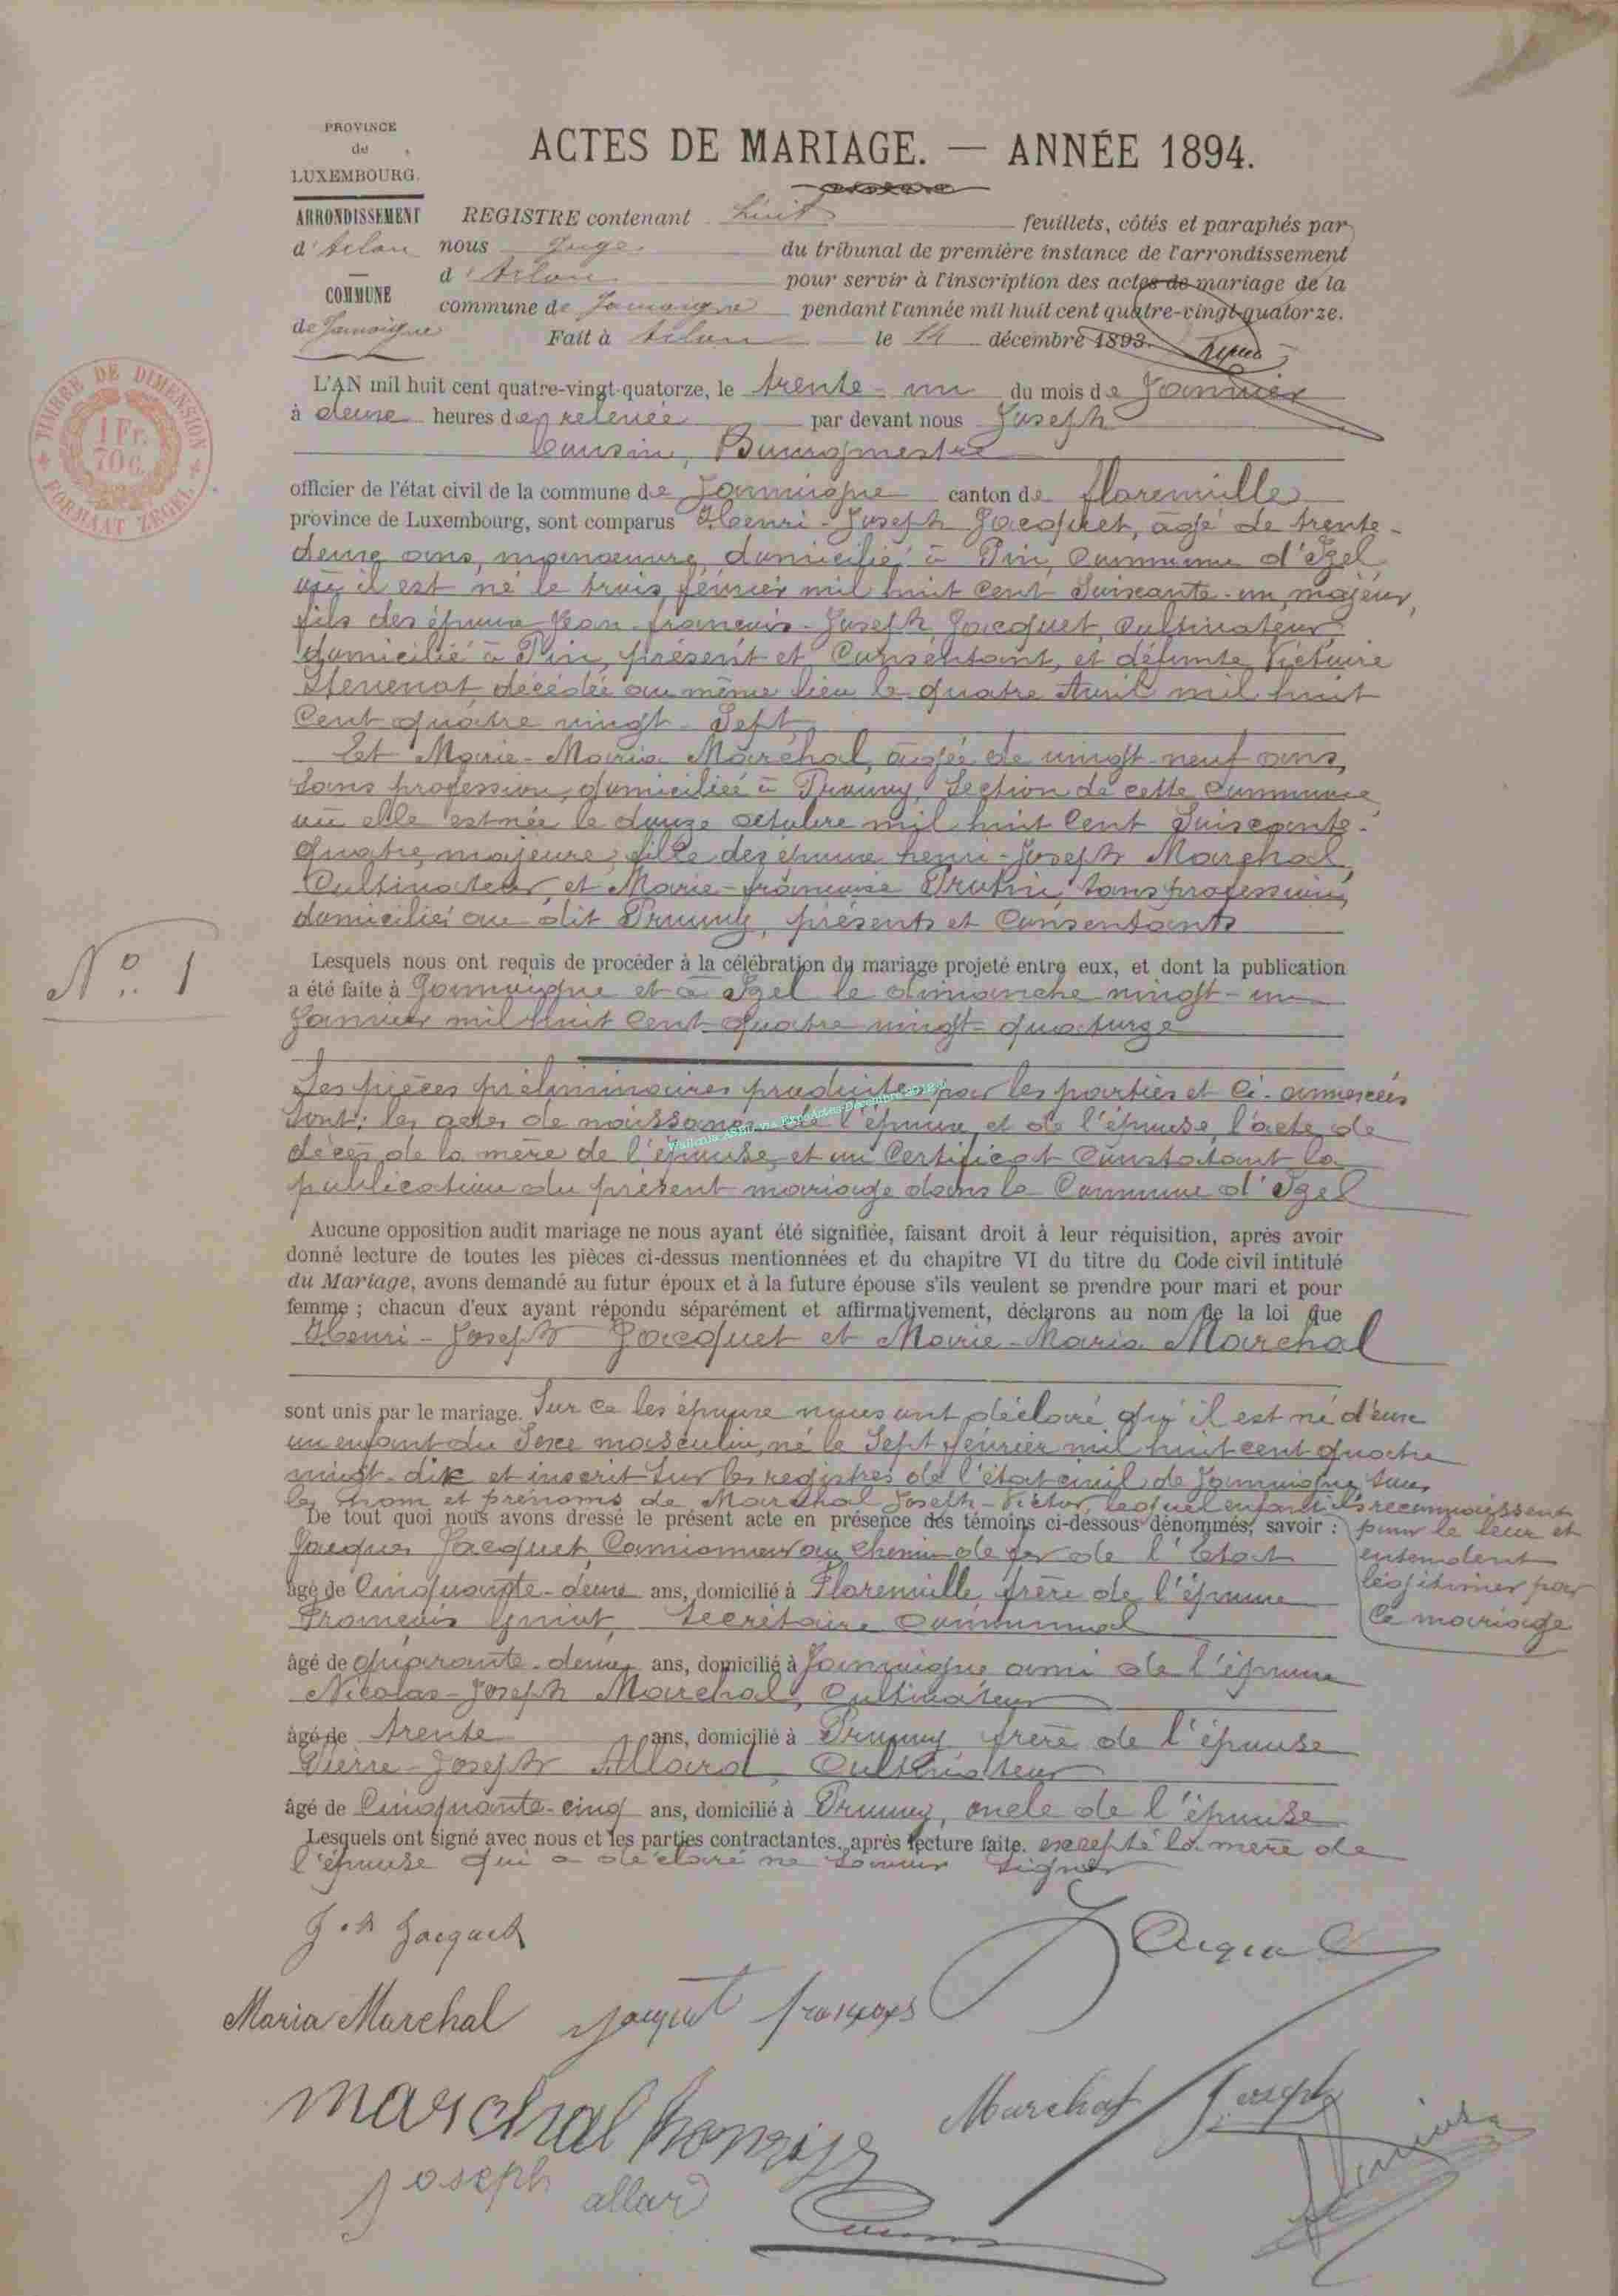 PROVINCE
de
LUXEMBOURG.
ARRONDISSEMENT
d'Arlon
COMMUNE
de Jamoigne
ACTES DE MARIAGE. — ANNÉE 1894.
REGISTRE contenant huit feuillets, côtés et paraphés par
nous Juge du tribunal de première instance de l'arrondissement
d'Arlon pour servir à l'inscription des actes de mariage de la
commune de Jamoigne pendant l'année mil huit cent quatre-vingt-quatorze.
Fait à Arlon le 14 décembre 1893.
TIMBRE DE DIMENSION
1 Fr.
70 c.
FORMAAT ZEGEL
L'AN mil huit cent quatre-vingt-quatorze, le trente-un du mois de Janvier
à deux heures de relevée par devant nous Joseph
Cousin, Bourgmestre
officier de l'état civil de la commune de Jamoigne canton de florenville
province de Luxembourg, sont comparus Henri-Joseph Jacquet, âgé de trente-
deux ans, manœuvre, domicilié à Pin, Commune d'Izel
où il est né le trois février mil huit cent Soixante-un, majeur,
fils des époux Jean-françois-Joseph Jacquet, Cultivateur,
domicilié à Pin, présent et Consentant, et défunte Victoire
décédée au même lieu le quatre Avril mil huit
Cent quatre vingt-Sept,
Et Marie-Maria Maréchal, âgée de vingt-neuf ans,
Sans profession, domiciliée à Prouvy, Section de cette Commune
où elle est née le douze octobre mil huit Cent Soixante-
quatre, majeure, fille des époux henri-Joseph Marchal,
Cultivateur, et Marie-françoise sans profession,
domiciliés au dit Prouvy, présents et Consentants
Nº. 1
Lesquels nous ont requis de procéder à la célébration du mariage projeté entre eux, et dont la publication
a été faite à Jamoigne et à Izel le dimanche vingt-un
Janvier mil huit Cent quatre vingt-quatorze
Les pièces préliminaires produites par les parties et Ci-annexées
Sont: les actes de naissance de l'époux et de l'épouse, l'acte de
décès de la mère de l'épouse, et un Certificat Constatant la
publication du présent mariage dans la Commune d'Izel
Aucune opposition audit mariage ne nous ayant été signifiée, faisant droit à leur réquisition, après avoir
donné lecture de toutes les pièces ci-dessus mentionnées et du chapitre VI du titre du Code civil intitulé
du Mariage, avons demandé au futur époux et à la future épouse s'ils veulent se prendre pour mari et pour
femme ; chacun d'eux ayant répondu séparément et affirmativement, déclarons au nom de la loi que
Henri-Joseph Jacquet et Marie-Maria Marchal
sont unis par le mariage. Sur ce les époux nous ont déclaré qu'il est né d'eux
un enfant du Sexe masculin, né le Sept février mil huit cent quatre
vingt-dix et inscrit Sur les registres de l'état civil de Jamoigne Sous
les nom et prénoms de Marchal Joseph-Victor, lequel enfant ils reconnaissent
pour le leur et
entendent
légitimer par
Ce mariage
De tout quoi nous avons dressé le présent acte en présence des témoins ci-dessous dénommés, savoir :
Jacques Jacquet, Camionneur au Chemin de fer de l'état
âgé de Cinquante-deux ans, domicilié à Florenville, frère de l'époux
François Secrétaire Communal
âgé de quarante-deux ans, domicilié à Jamoigne ami de l'époux
Nicolas-Joseph Marchal, Cultivateur
âgé de trente ans, domicilié à Prouvy frère de l'épouse
Pierre-Joseph Allard, Cultivateur
âgé de Cinquante-cinq ans, domicilié à Prouvy, oncle de l'épouse
Lesquels ont signé avec nous et les parties contractantes, après lecture faite. excepté la mère de
l'épouse qui a déclaré ne Savoir Signer
J. h Jacquet
Maria Marchal
Jacquet françois
marchal
Marchal Joseph
Joseph allard